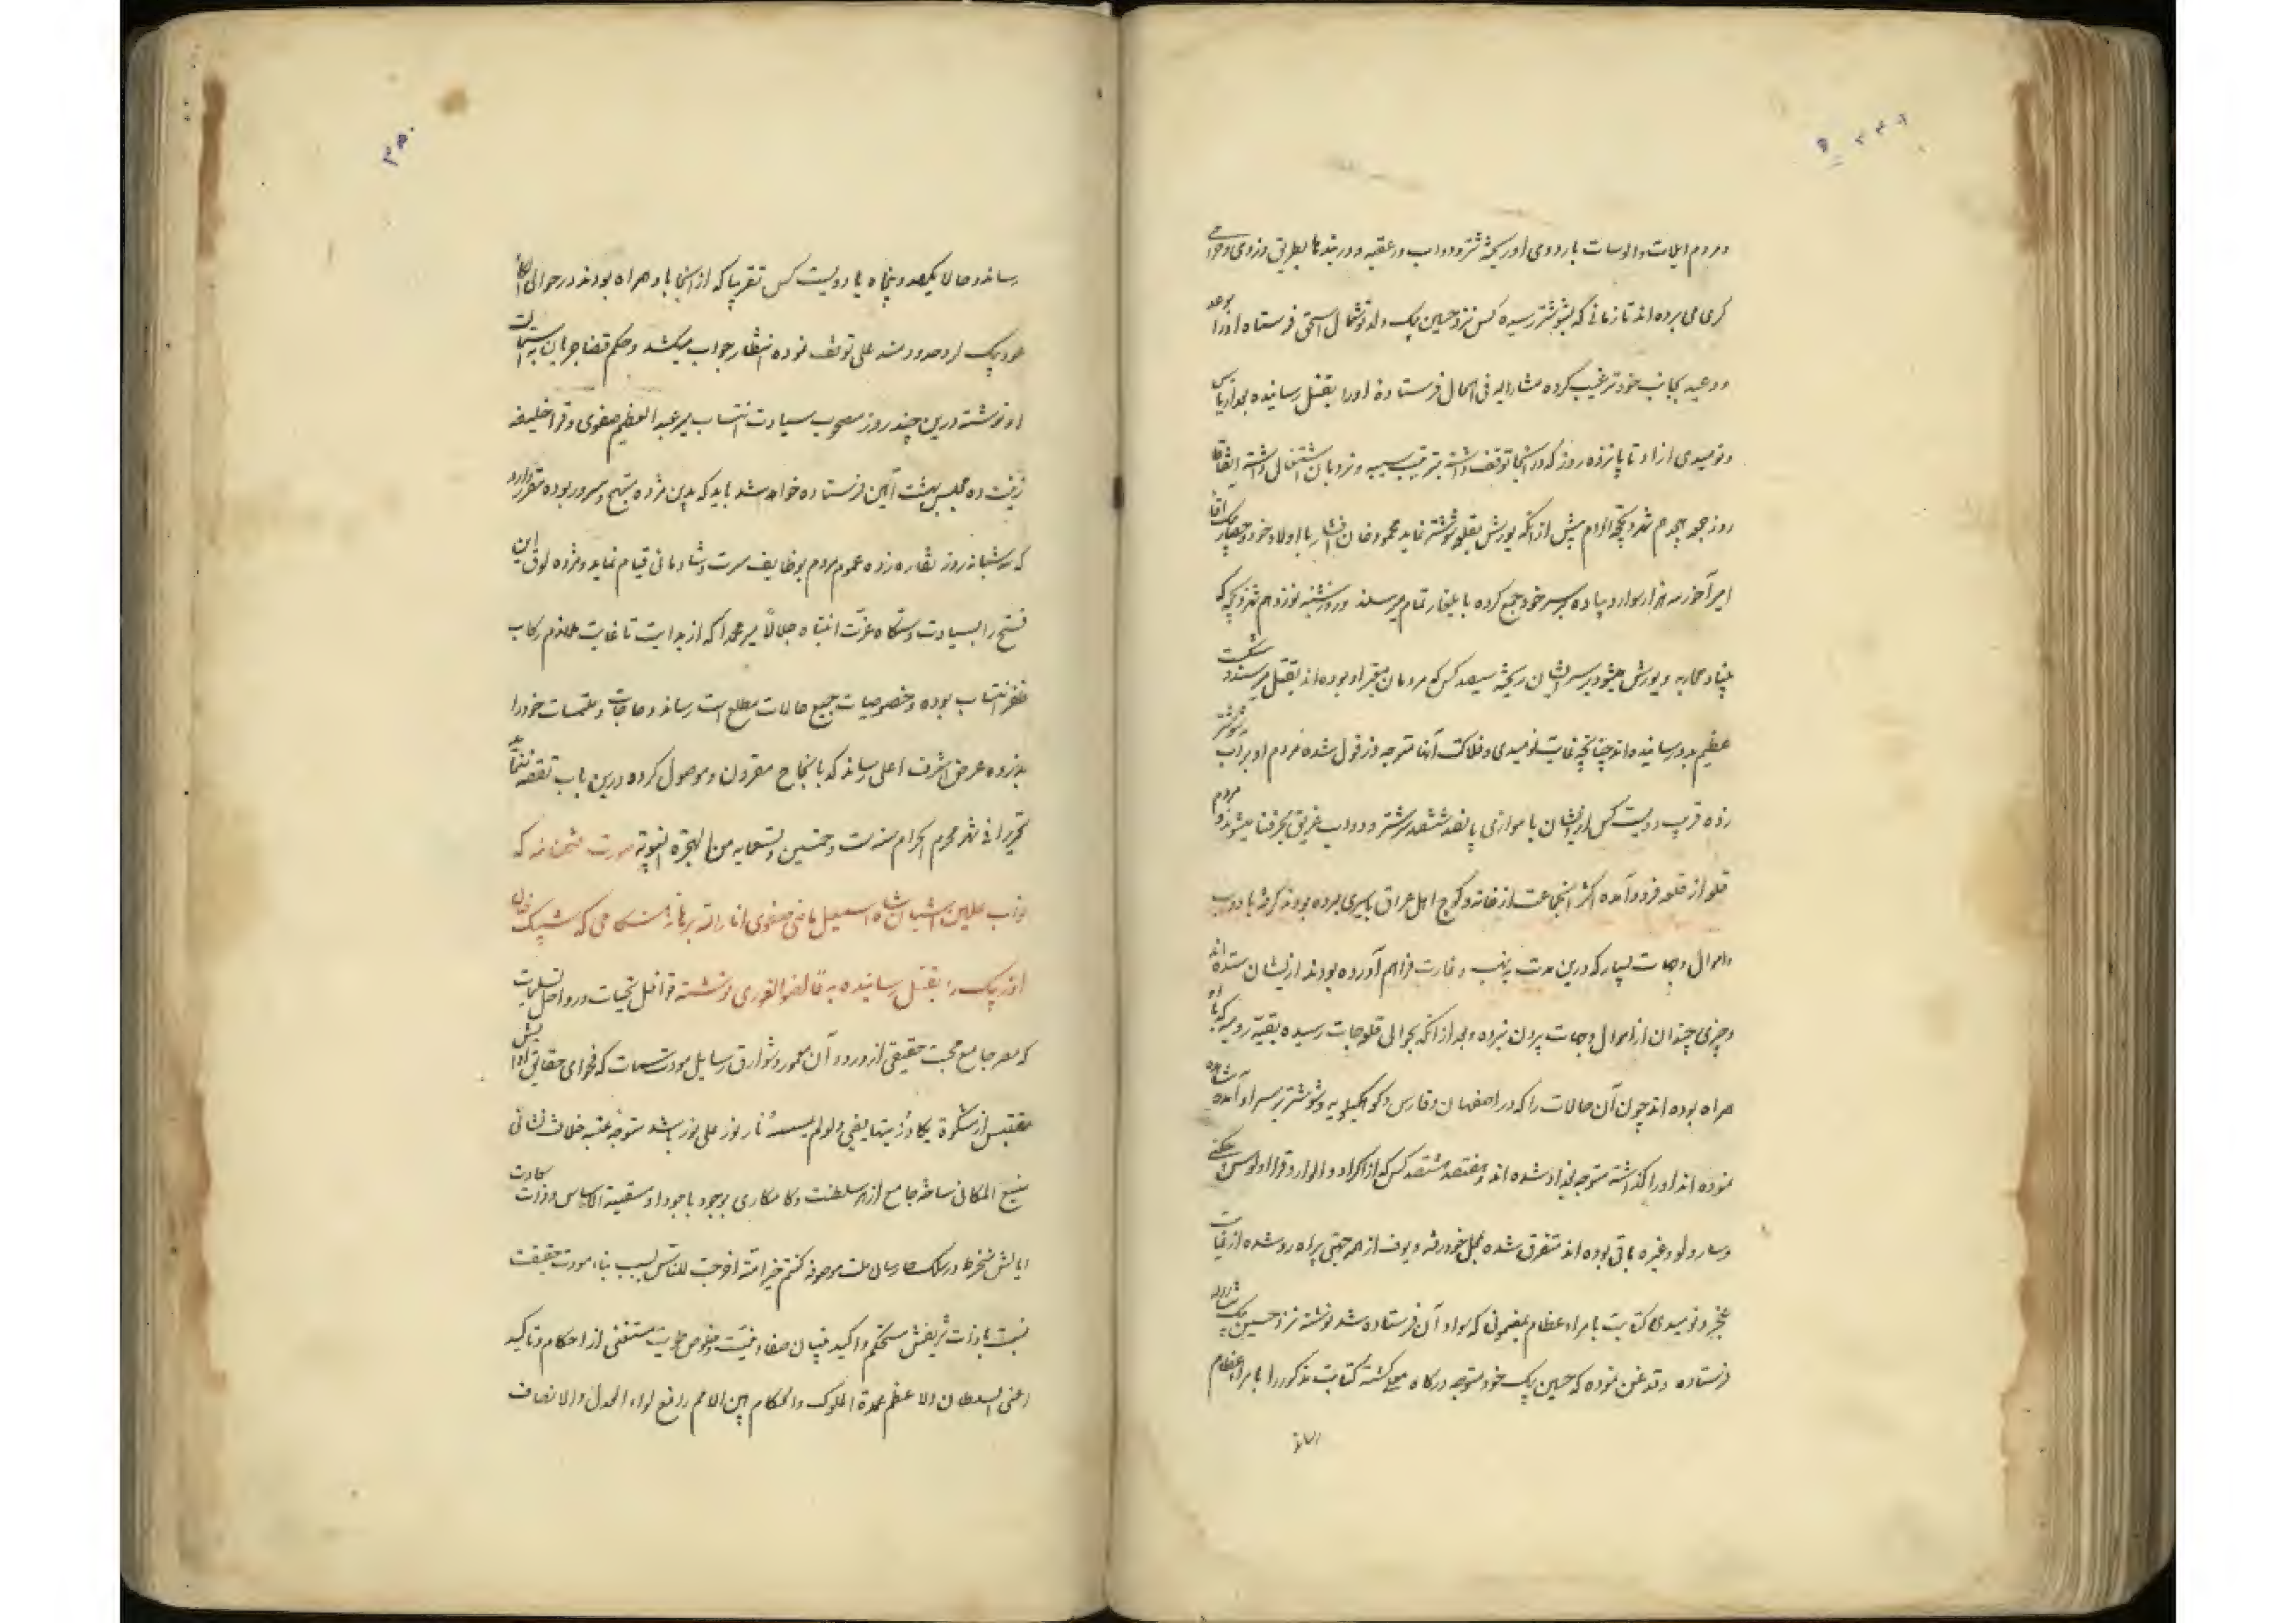 و مردم ایلات و الوسات با اردوی او ریخته شتر و دواب در عقبه و در بندها بطریق دزدی و حرامی
گری می برده اند تا زمانی که بشوشتر رسیده کس نزد حسین بیک ولد فرستاده او را بوعد
و وعید بجانب خود ترغیب کرده مشارالیه فی الحال فرستادهٔ او را بقتل رسانیده بعد از یاس
و نومیدی از او تا پانزده روز که در آنجا توقف داشته بترتیب سیبه و نردبان اشتغال داشته اتفاقا
روز جمعه هجدهم شهر ذیحجة الحرام پیش از آنکه یورش بقلعه شوشتر نماید محمود خان افشار با اولاد خود و آقا
امیرآخور سه هزار سوار و پیاده بر سر خود جمع کرده با یلغار تمام میرسند و روز شنبه نوزدهم شهر ذیحجه که
بنیاد محاربه و یورش میشود بر سر ایشان ریخته سیصد کس که مردمان معتبر او بوده اند بقتل میرسند و شکست
عظیم بدو رسانیده اند چنانچه بغایت نومیدی و فلاکت آنها متوجه دزفول شده مردم او بر آب شوشتر
زده قریب دویست کس از ایشان با موازی پانصد ششصد سر شتر و دواب غریق بحر فنا میشوند و مردم
قلعه از قلعه فرود آمده اکثر آنجماعت از خانه و کوچ اهل عراق باسیری برده بودند گرفته با دواب
و اموال و جهات بسیار که درین مدت بنهب و غارت فراهم آورده بودند از ایشان ستده اند
و چیزی چندان از اموال و جهات بیرون نبرده و بعد از آنکه بحوالی قلعجات رسیده بقیه رومیه که با او
همراه بوده اند چون آن حالات را که در اصفهان و فارس و کوه کیلویه و شوشتر بر سر او آمده مشاهده
نموده اند او را گذاشته متوجه بغداد شده اند و هفتصد هشتصد کس که از اکراد و الوار و قرا اولوس
و سارولو و غیره باقی بوده اند متفرق شده بمحل خود رفته و یوف از همه جهتی براه رو شده از غایت
عجز و نومیدی کتابت بامراء عظام بمضمونی که سواد آن فرستاده شد نوشته نزد حسین بیک مشارالیه
فرستاده و قدغن نموده که حسین بیک خود متوجه درگاه معلی گشته کتابت مذکور را بامراء عظام
رساند
رساند و حالا یکصد و پنجاه یا دویست کس تقریبا که از آنجا با او همراه بودند در حوالی
بیک از حدود توقف نموده انتظار جواب میکشد و حکم قضا جریان به
او نوشته درین چند روز مصحوب سیادت انتساب میر عبدالعظیم صفوی و قرا خلیفه
زینت ده مجلس بهشت آئین فرستاده خواهد شد باید که بدین مژده مبتهج و مسرور بوده مقرر دارد
که سه شبانه روز نقاره زده عموم مردم بوظایف مسرت و شادمانی قیام نماید و مژده لوق این
فتح را بسیادت دستگاه عزت انتباه جلالا میر محمدا که از بدایت تا غایت ملازم رکاب
ظفر انتساب بوده و بخصوصیات جمیع حالات مطلع است رساند و حاجات و ملتمسات خود را
بذروه عرض اشرف اعلی رساند که بانجاح مقرون و موصول کرده درین باب تقصیر ننماید
تحریرا فی شهر محرم الحرام سنه ست و خمسین و تسعمایه من الهجرة النبویة صورت فتحنامه که
نواب علیین آشیان شاه اسمعیل ماضی صفوی انار الله برهانه هنگامی که شیبک خان
اوزبک را بقتل رسانیده به قانصو الغوری نوشته قوافل تحیات و رواحل تسلیمات
که مصر جامع محبت حقیقی از ورود آن معمور و شوارق رسایل مودت سمات که فحوای حقایق
مقتبس از مشکوة یکاد زیتها یضیء ولو لم تمسسه نار نور علی نور باشد متوجه عتبه خلافت نشانی
منیع المکانی ساخته جامع ازهر سلطنت و کامکاری بوجود باجود او سقیبة الاساس و ذات سعادت
ایالتش منخرط در سلک ملت موصوفه کنتم خیر امة اخرجت للناس بسبب بناء مودت حقیقت
نسبت با ذات شریفش مستحکم و اکید و بنیان صفاء نیت و خلوص طویت مستغنی از احکام و تاکید
اعنی السلطان الاعظم عمدة الملوک والحکام بین الامم رافع لواء العدل والانصاف